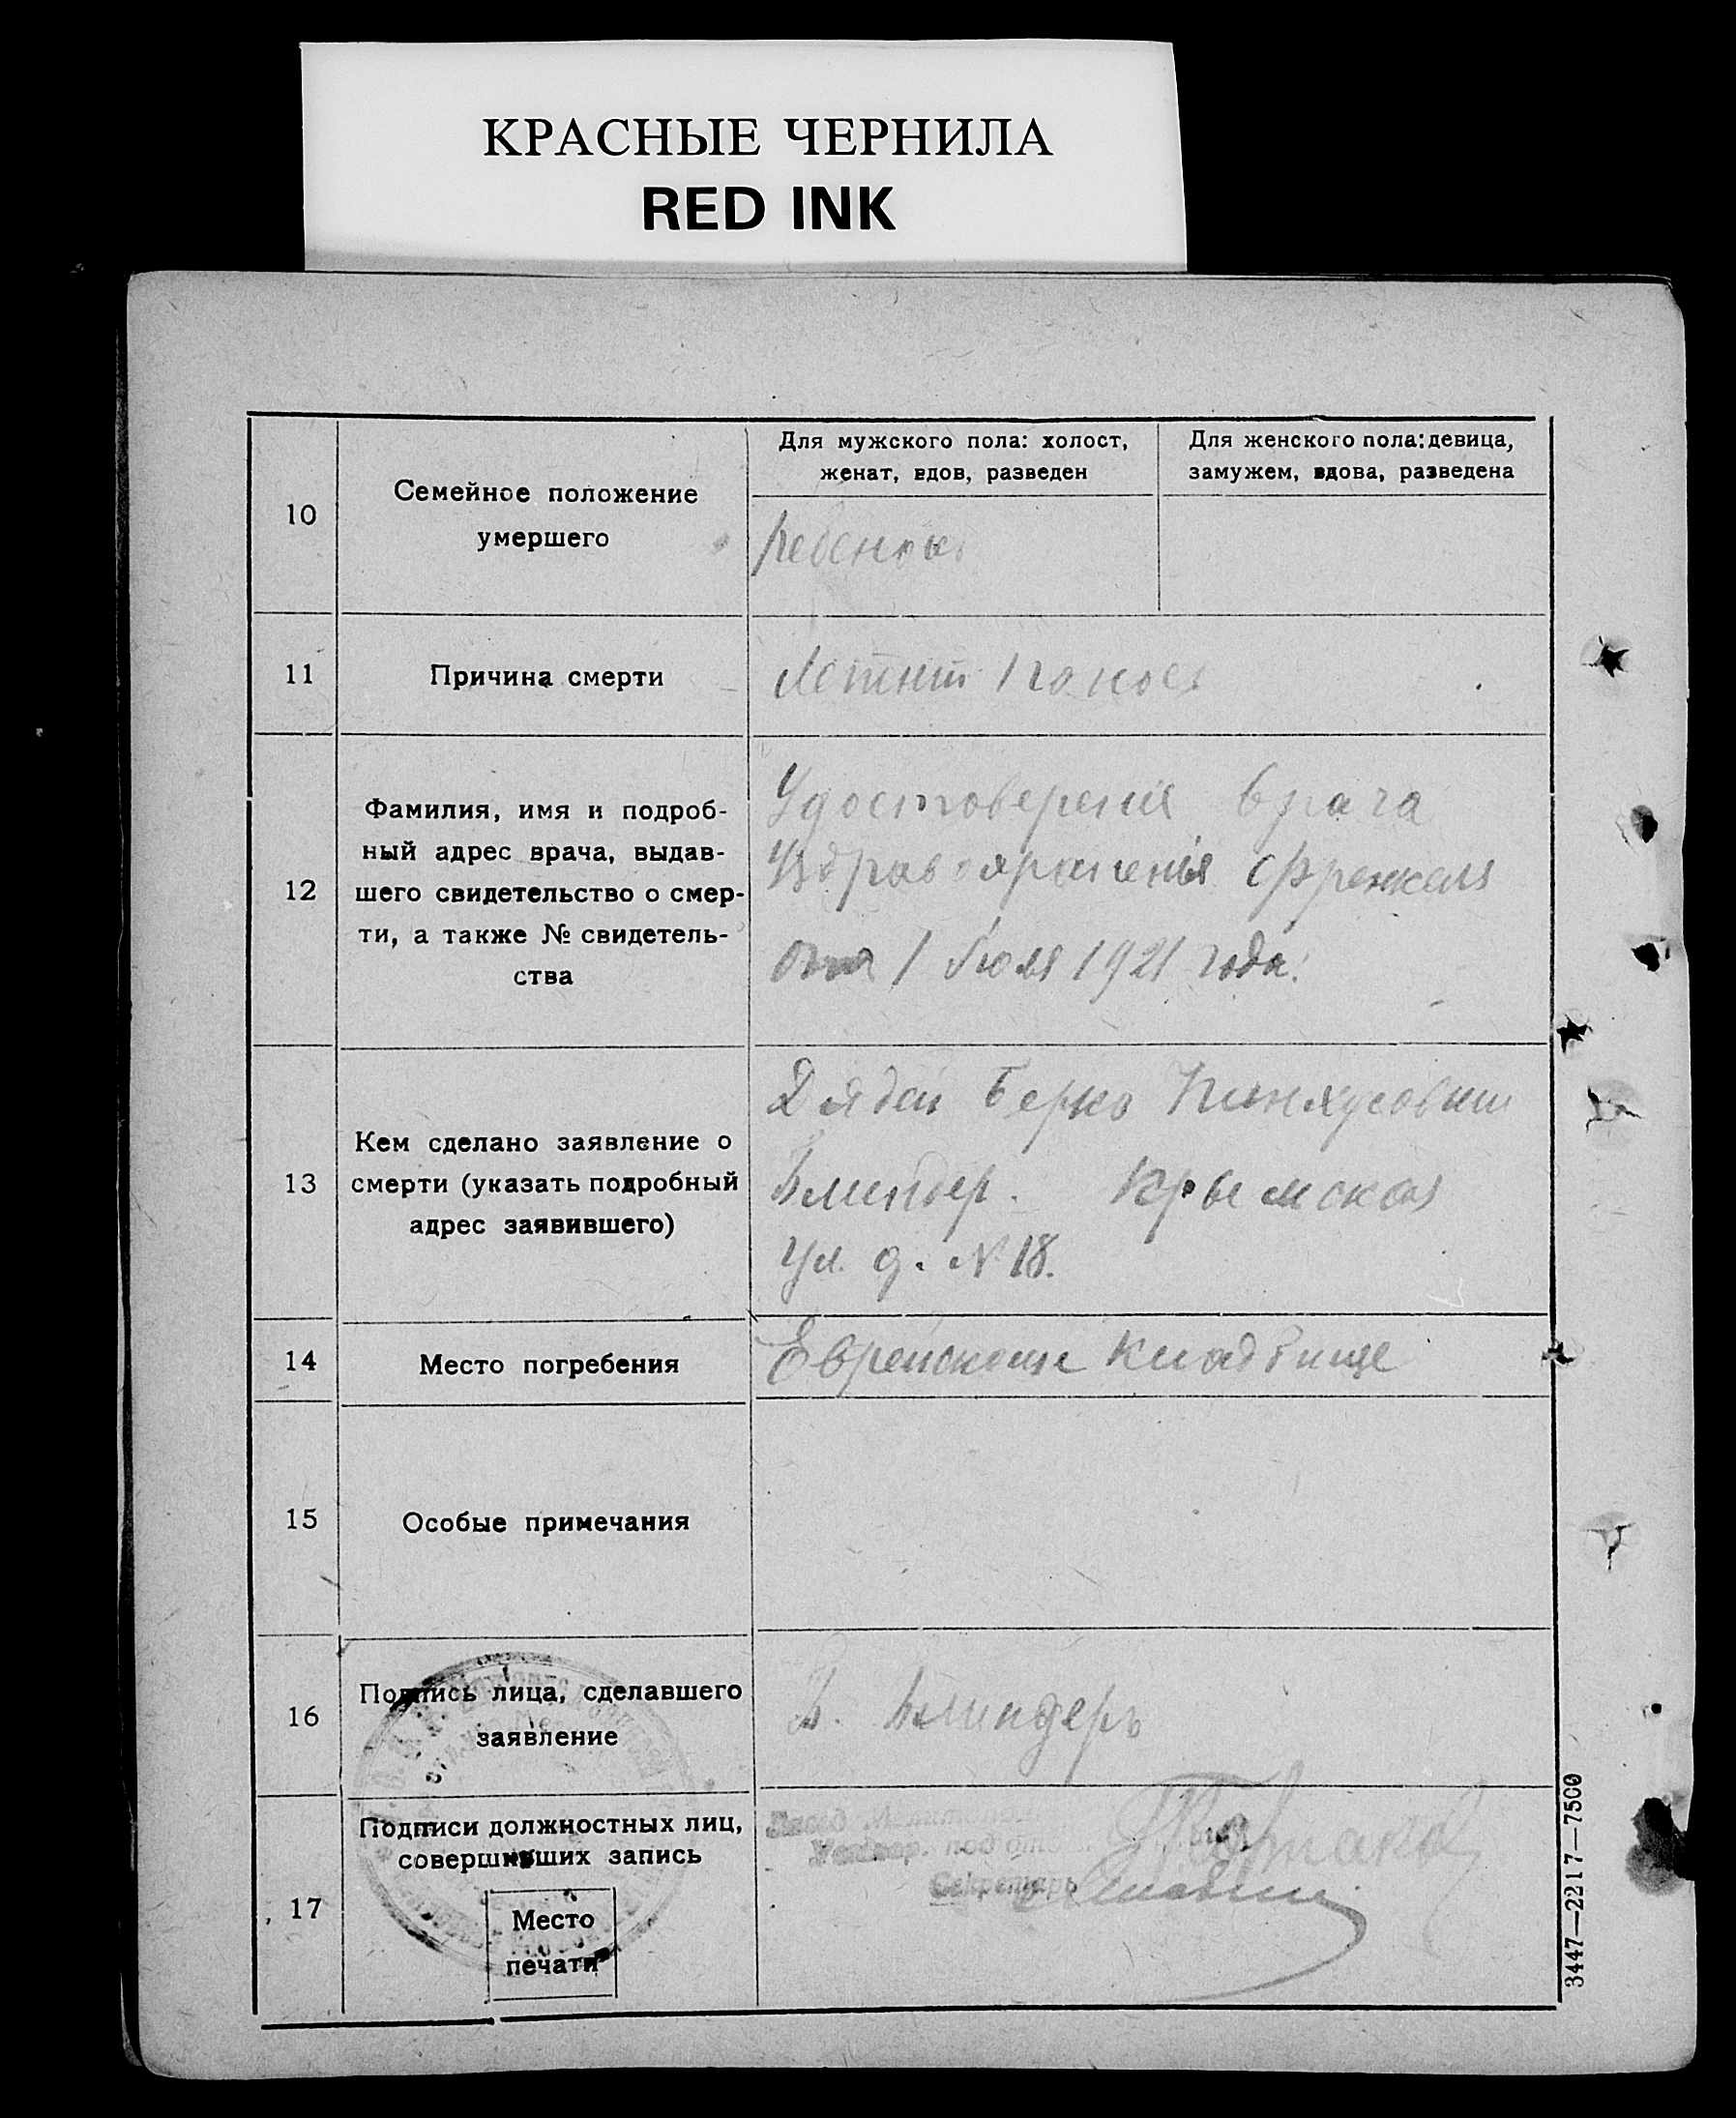 КРАСНЫЕ ЧЕРНИЛА
RED INK
10
Семейное положение
умершего
Для мужского пола: холост,
женат, вдов, разведен
Для женского пола: девица,
замужем, вдова, разведена
Ребенок
11
Причина смерти
понос
12
Фамилия, имя и подроб-
ный адрес врача, выдав-
шего свидетельство о смер-
ти, а также № свидетель-
ства
Удостоверения врача
Френкеля
1 Июля 1921 года.
13
Кем сделано заявление о
смерти (указать подробный
адрес заявившего)
Дядей Берко Пинхусович
Блиндер. Крымская
ул. д. № 18.
14
Место погребения
Еврейское кладбище
15
Особые примечания
16
Подпись лица, сделавшего
заявление
Б. Блиндеръ
17
Подписи должностных лиц,
совершивших запись
Место
печати
Секретарь
3447—2217—7500